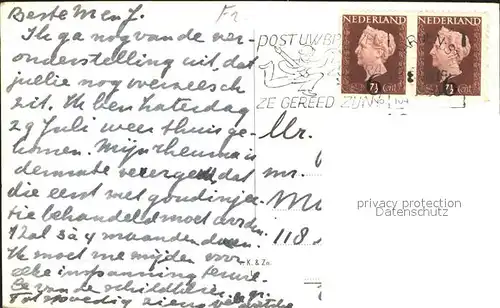 Beste M en J.
Fr
Ik ga nog van de ver-
onderstelling uit, dat
jullie nog overzeesch
zit. Ik ben Zaterdag
29 Juli weer thuis ge-
komen. Mijn rheuma is
dermate verergerd, dat
die eerst met goudinjec-
tie behandeld moet worden.
Zal 3 à 4 maanden duren.
Ik moet me mijden voor
elke inspanning
van de schildklier.
Tot spoedig ziens
POST UW BR
ZE GEREED ZIJN
NEDERLAND
7½ cnt
NEDERLAND
7½ cnt
Mr.
mr.
M
118
K. & Zn.
privacy protection
Datenschutz